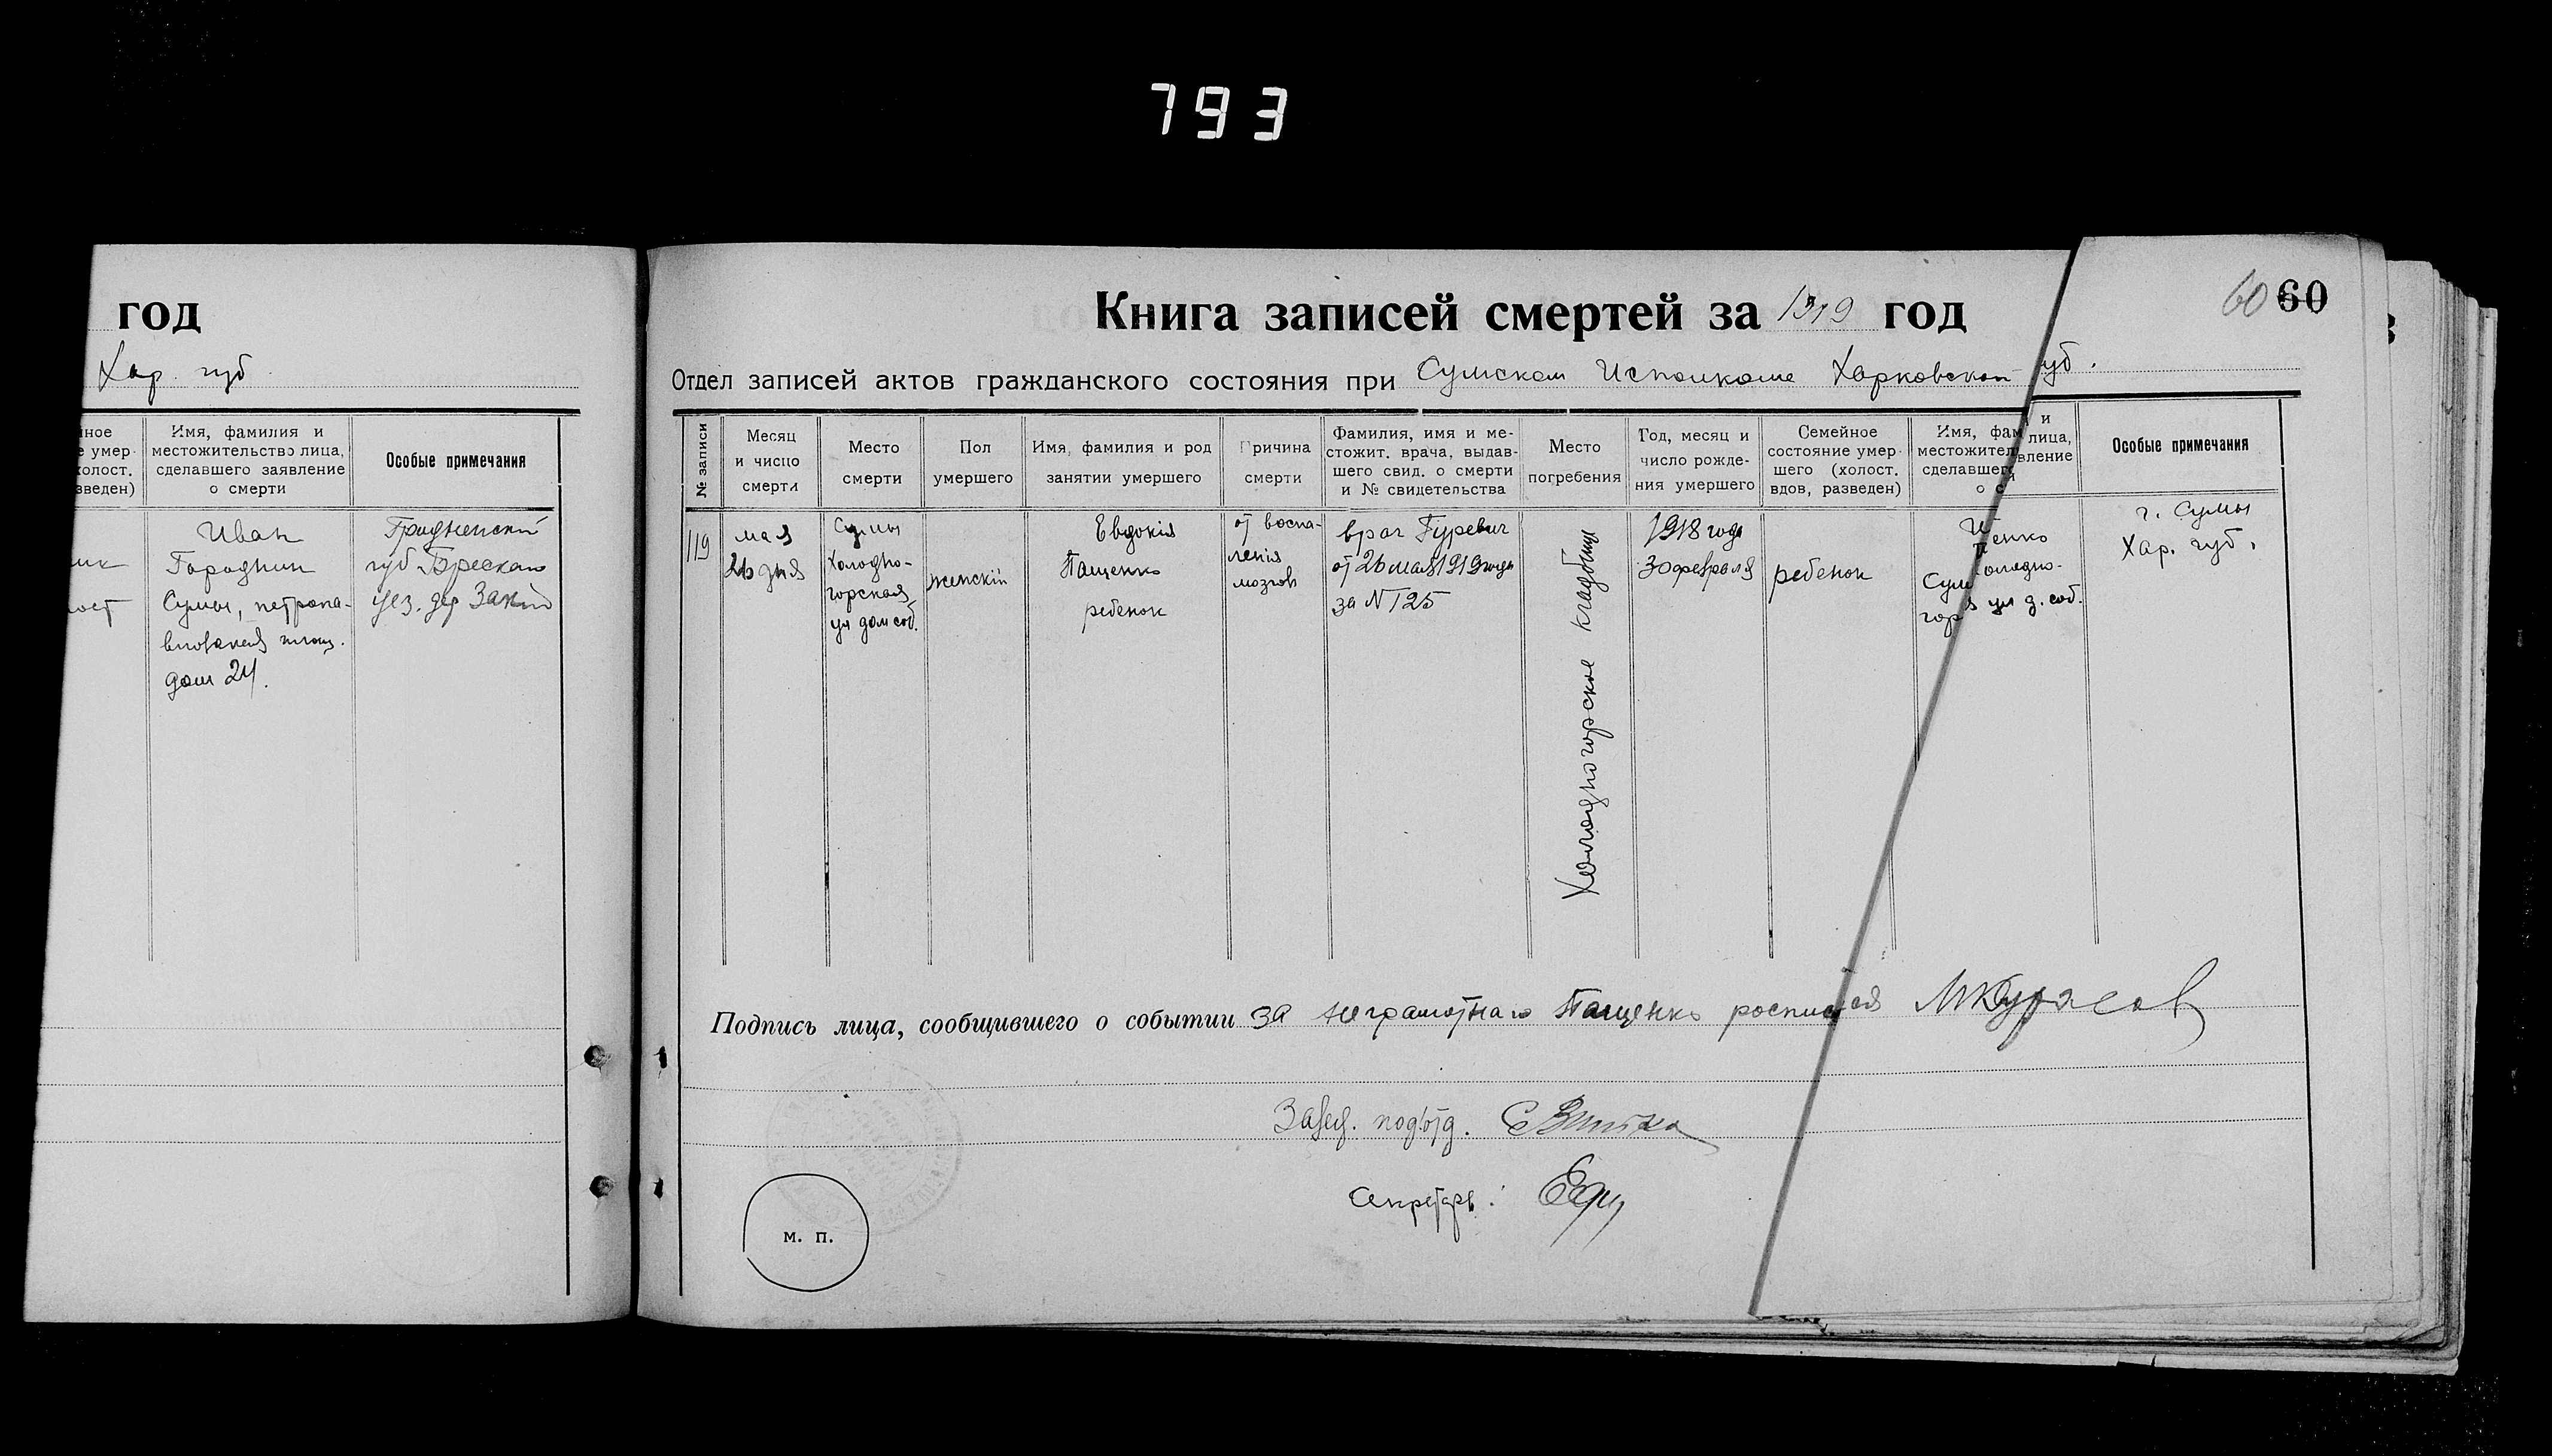 793
год
Хар. губ
Имя, фамилия и
местожительство лица,
сделавшего заявление
о смерти
Особые примечания
Иван
Городнин
Сумы, петропа-
вловская площ.
дом 24.
Гродненской
губ. Брескаго
уез. дер
60 60
Книга записей смертей за 1919 год
Отдел записей актов гражданского состояния при Сумском Исполкоме Харковской губ.
№ записи
Месяц
и число
смерти
Место
смерти
Пол
умершего
Имя, фамилия и род
занятии умершего
Причина
смерти
Фамилия, имя и ме-
стожит. врача, выдав-
шего свид. о смерти
и № свидетельства
Место
погребения
Год, месяц и
число рожде-
ния умершего
Семейное
состояние умер-
шего (холост.
вдов, разведен)
Имя, фам и
местожител лица,
сделавшег вление
о с
Особые примечания
119
мая
26 дня
Сумы
Холодно-
горская
ул дом соб.
женскій
Евдокия
Пащенко
ребенок
от воспа-
ления
мозгов
врач Гуревич
от 26 мая 1919 года
за № 125
Холодногорское кладбище
1918 года
30 февраля
ребенок
енко
Сум олодно-
гор я ул д. соб.
г. Сумы
Хар. губ.
Подпись лица, сообщившего о событии за неграмотнаго Пащенко росписался
Завед. подот.
Секретарь:
м. п.